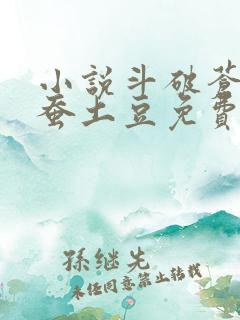 小説斗破蒼
蚕土豆免費
孫继先
未经同意禁止转载